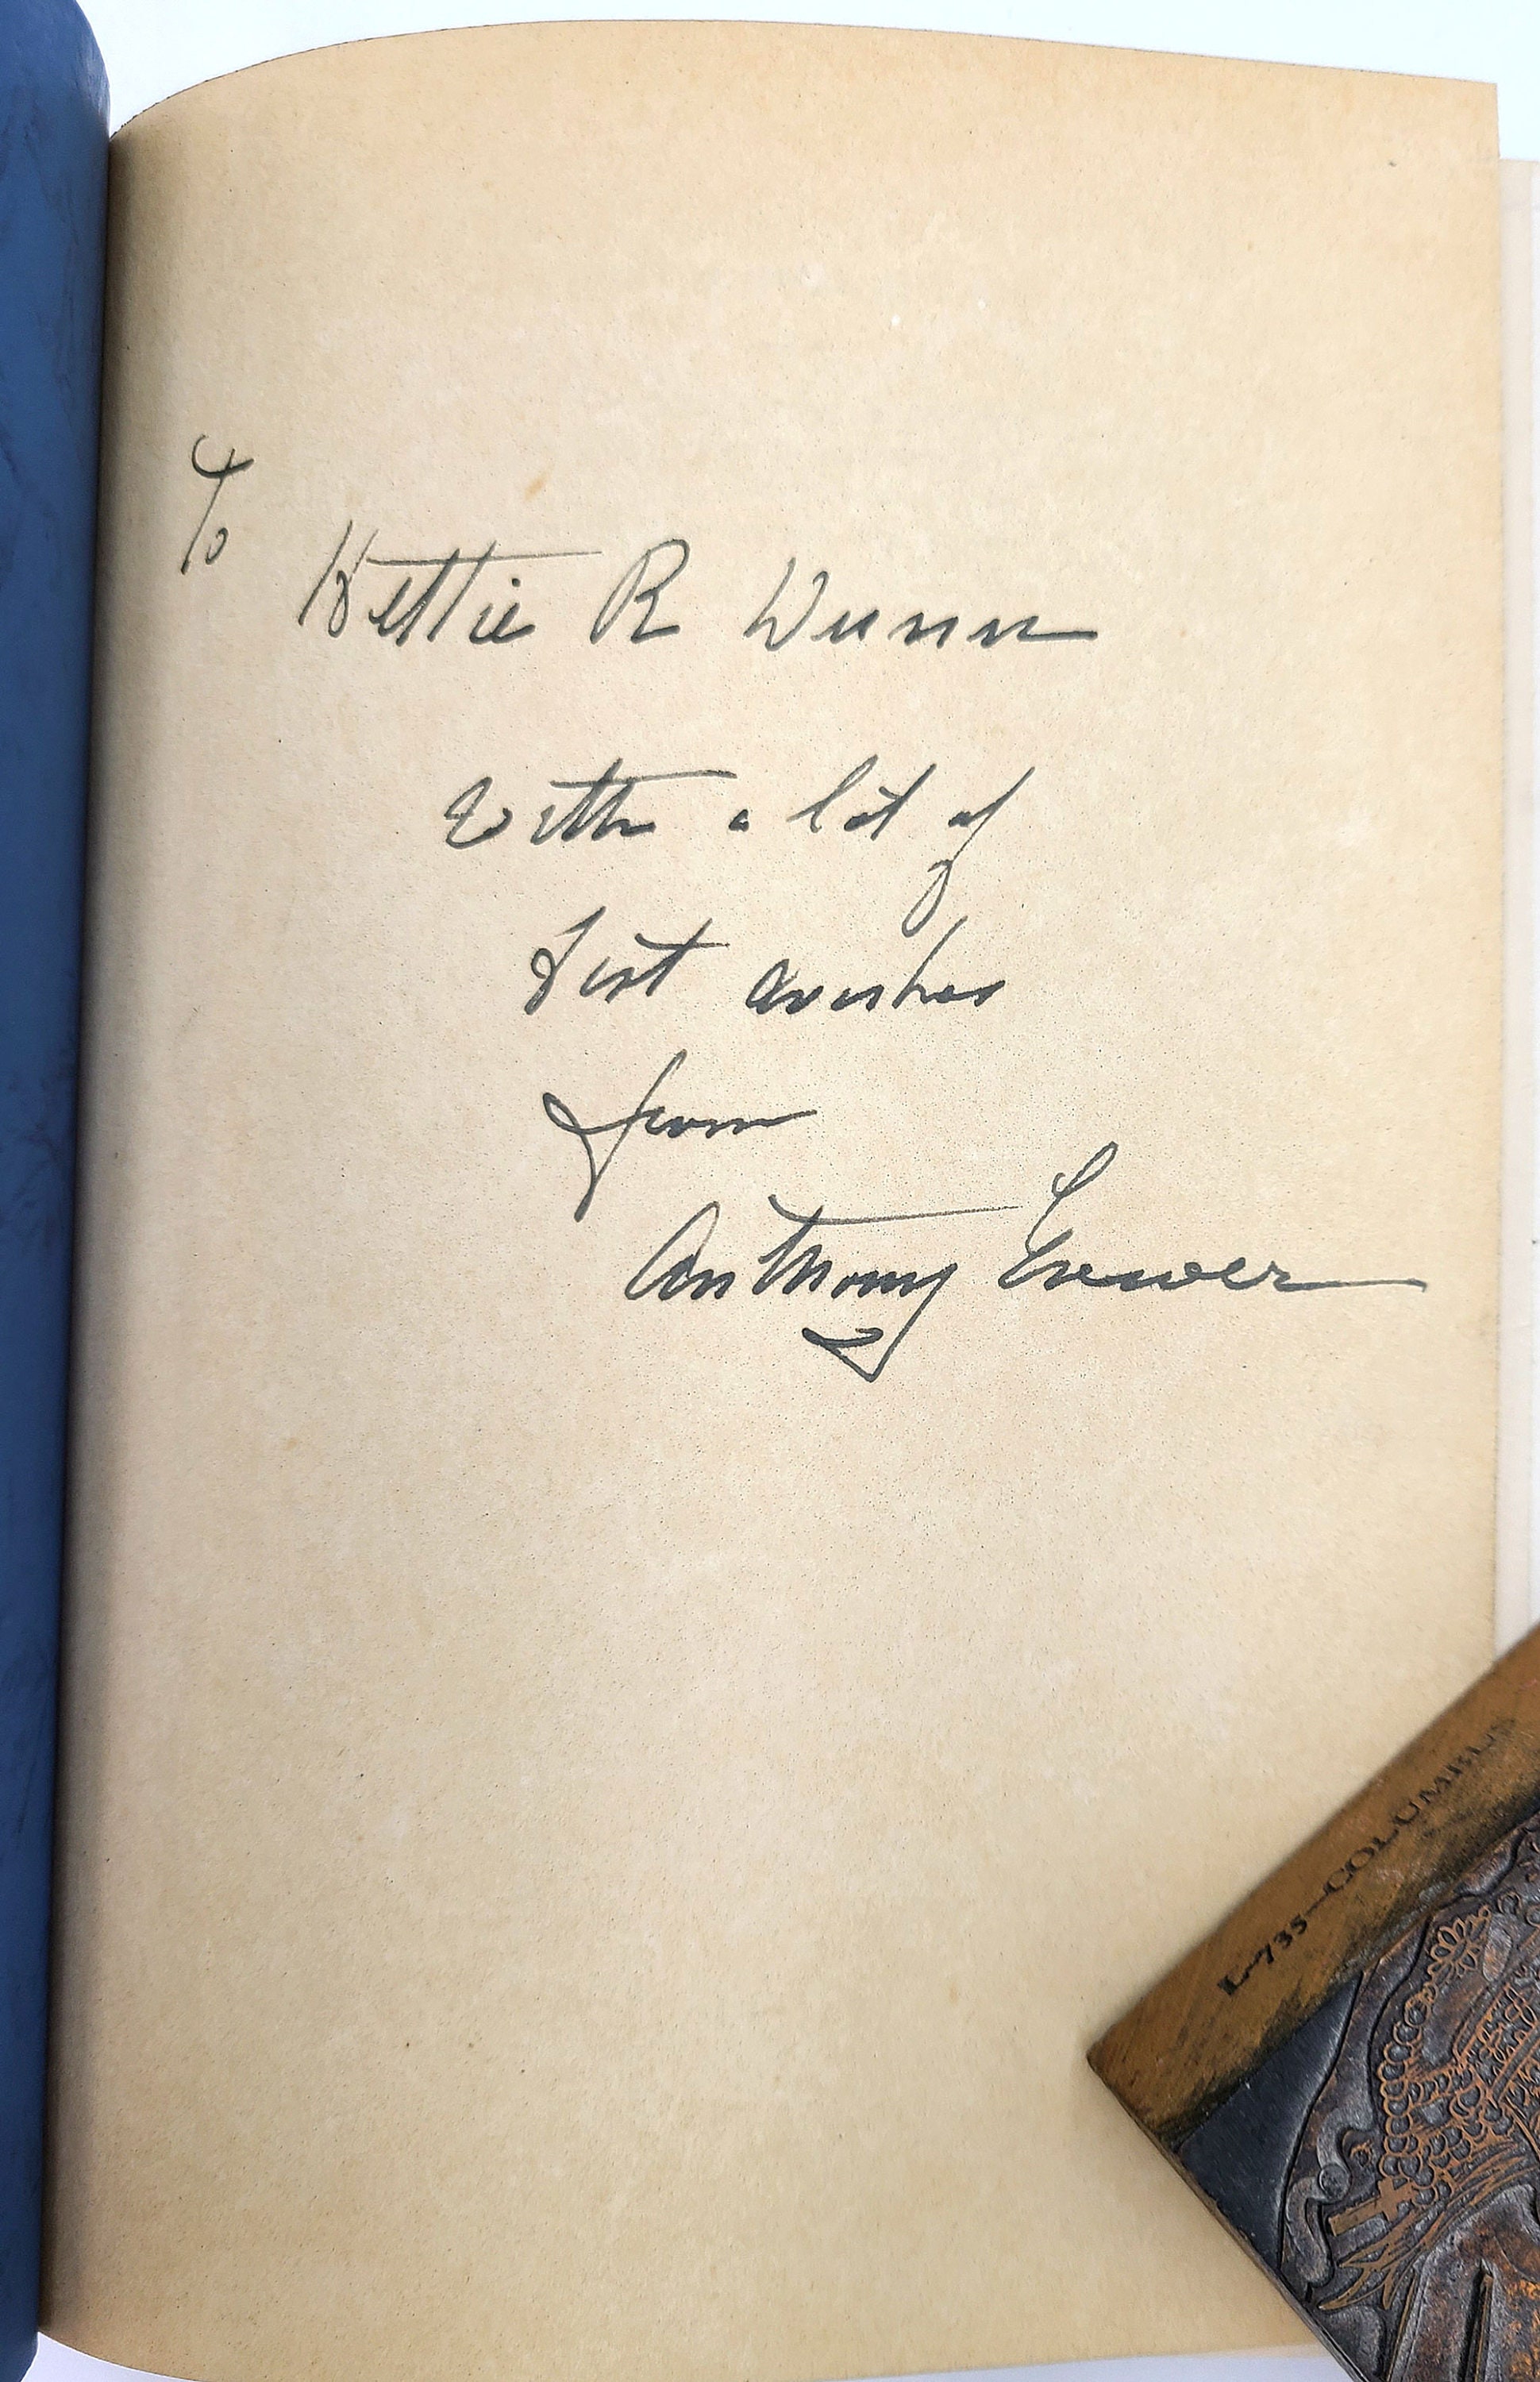 To
Hettie R Dunn
With a lot of
best wishes
from
Anthony Euwer
L-735-COLUMBUS